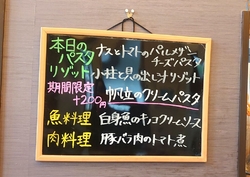 本日の
パスタ
ナストマトのパルメザン
チーズパスタ
リゾット 小柱と貝の出し汁リゾット
期間限定
+200円
帆立のクリームパスタ
魚料理 白身魚のキノコクリームソース
肉料理 豚バラ肉のトマト煮